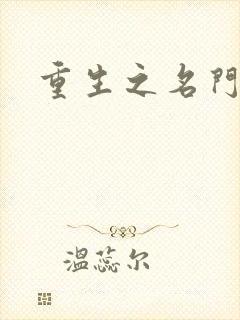 重生之名門
溫蕊尔